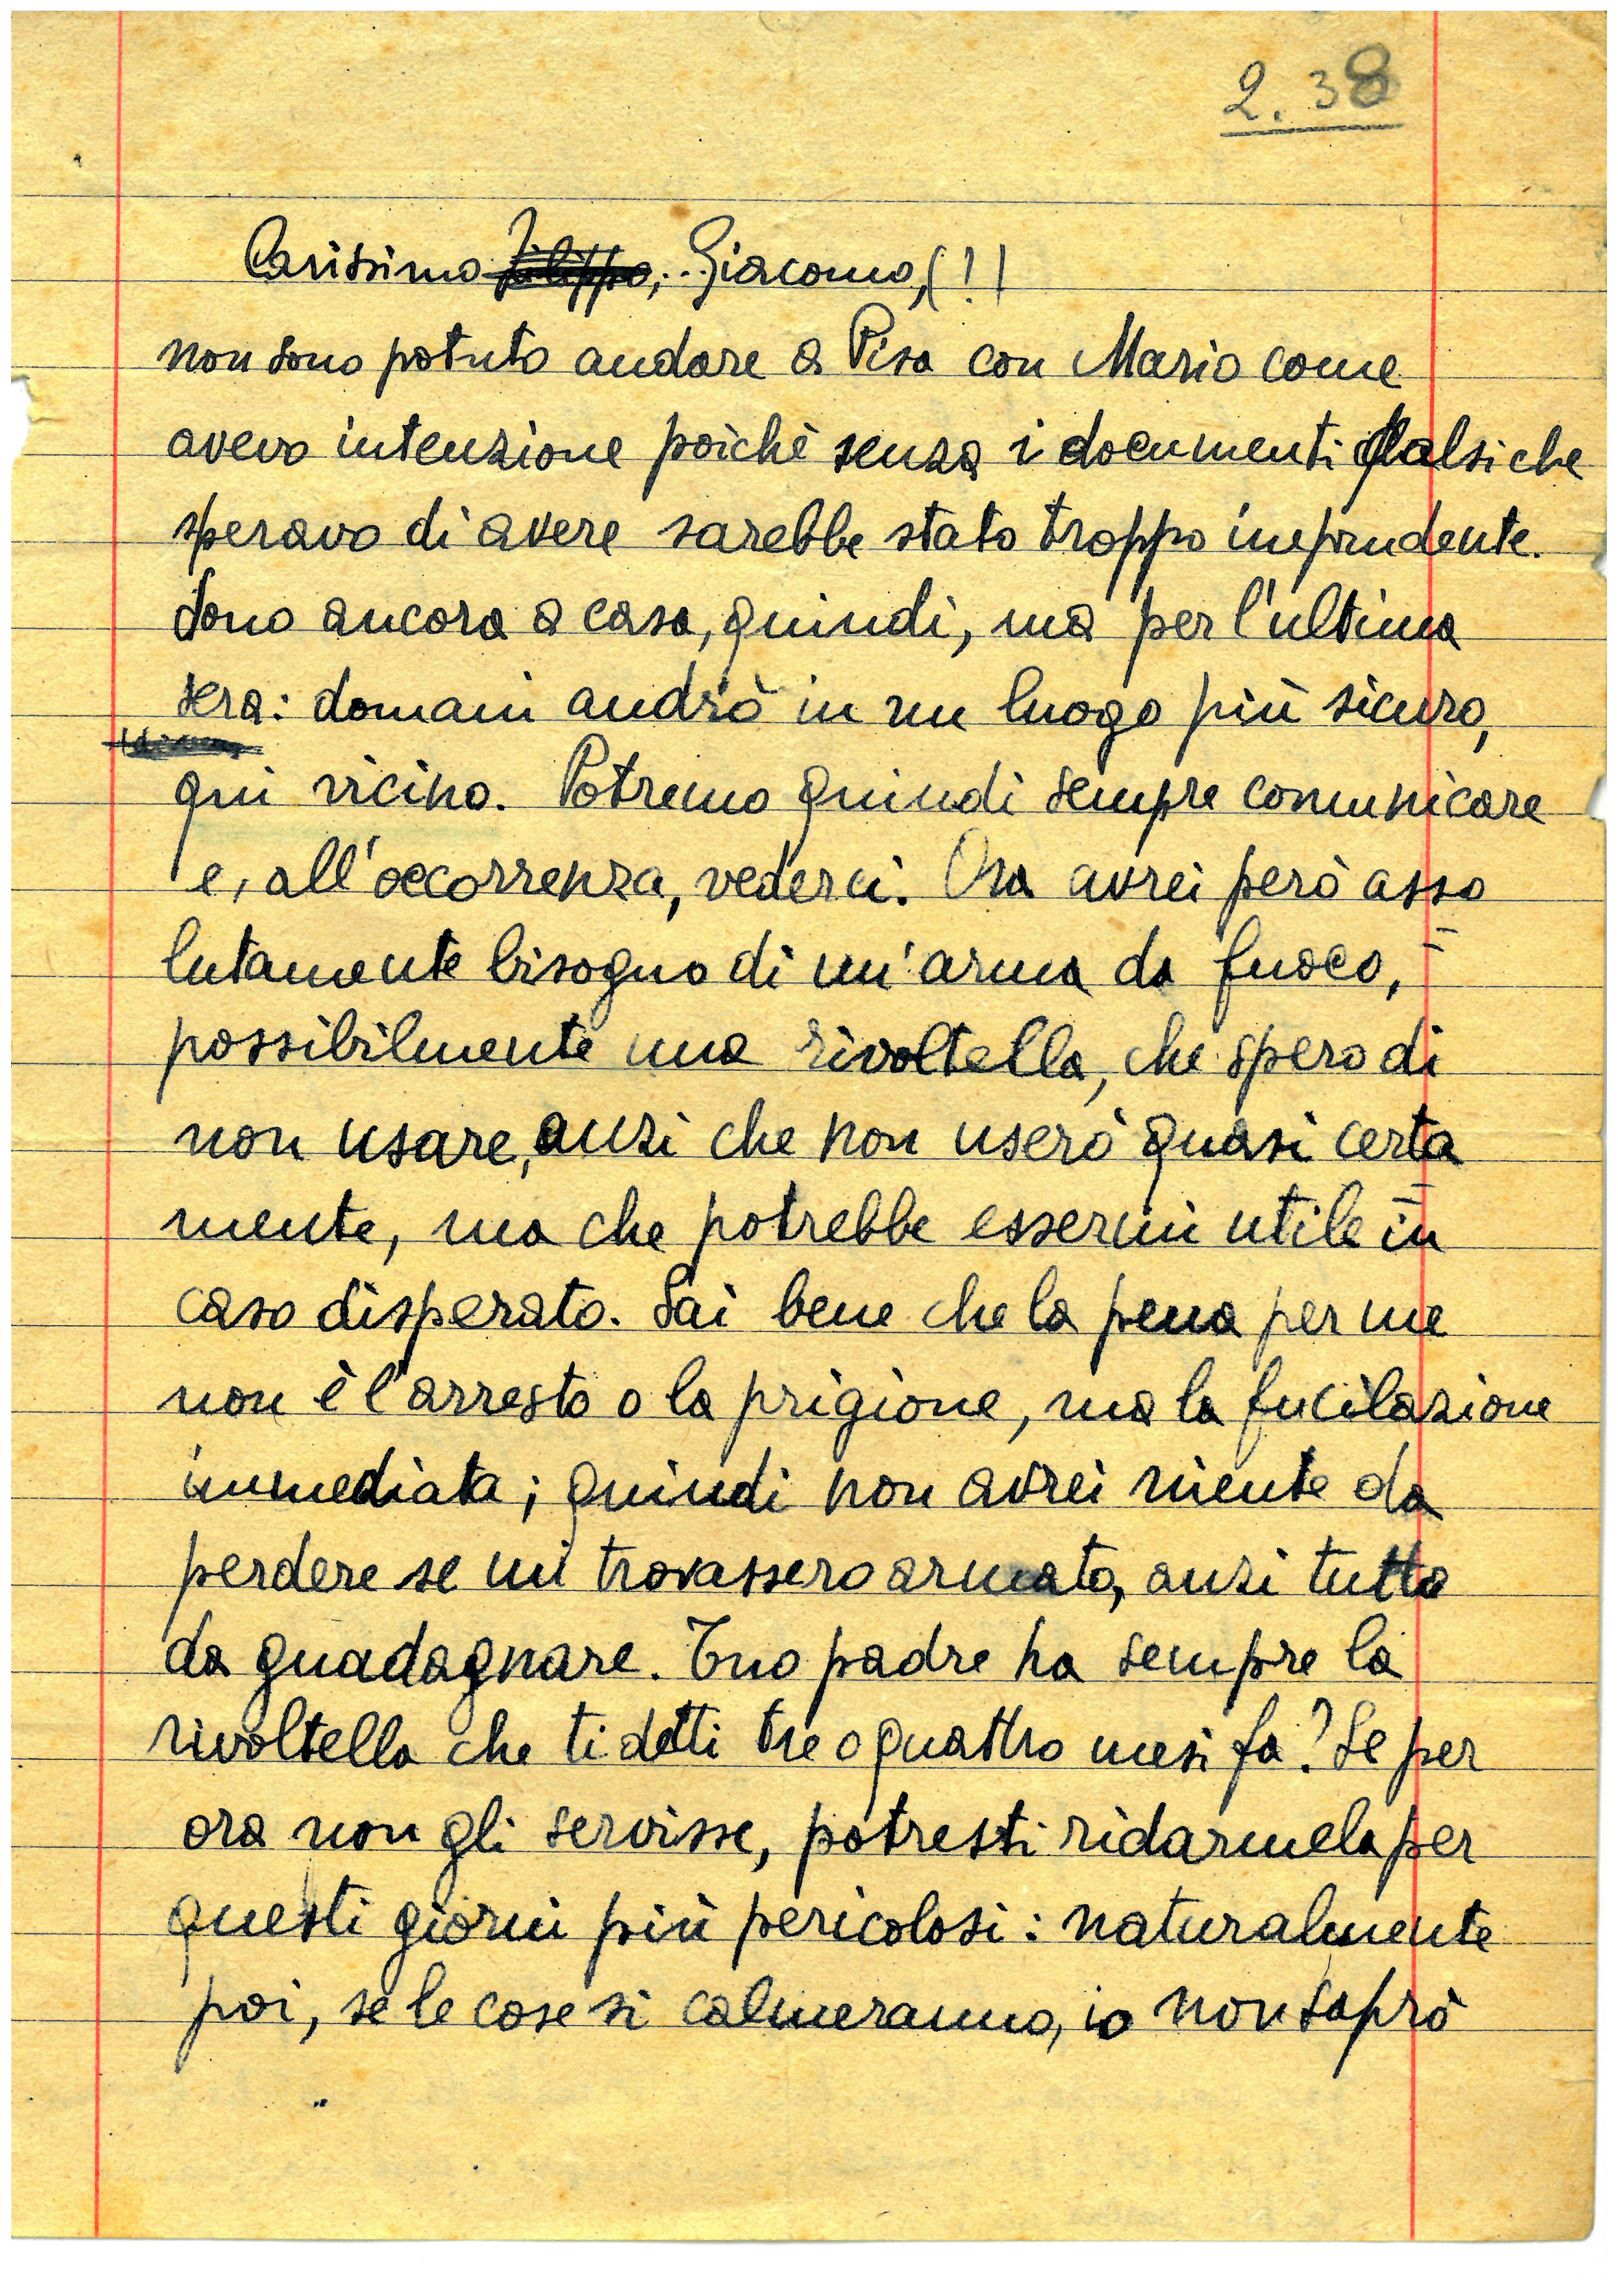 2.38
Carissimo Filippo, .. Giacomo, (!)
non sono potuto andare a Pisa con Mario come
avevo intenzione poichè senza i documenti falsi che
speravo di avere sarebbe stato troppo imprudente.
Sono ancora a casa, quindi, ma per l'ultima
sera: domani andrò in un luogo più sicuro,
qui vicino. Potremo quindi sempre comunicare
e, all'occorrenza, vederci. Ora avrei però asso
lutamente bisogno di un'arma da fuoco,
possibilmente una rivoltella, che spero di
non usare, anzi che non userò quasi certa
mente, ma che potrebbe essermi utile in
caso disperato. Sai bene che la pena per me
non è l'arresto o la prigione, ma la fucilazione
immediata; quindi non avrei niente da
perdere se mi trovassero armato, anzi tutto
da guadagnare. Tuo padre ha sempre la
rivoltella che ti detti tre o quattro mesi fa? Se per
ora non gli servisse, potresti ridarmela per
questi giorni più pericolosi: naturalmente
poi, se le cose si calmeranno, io non saprò